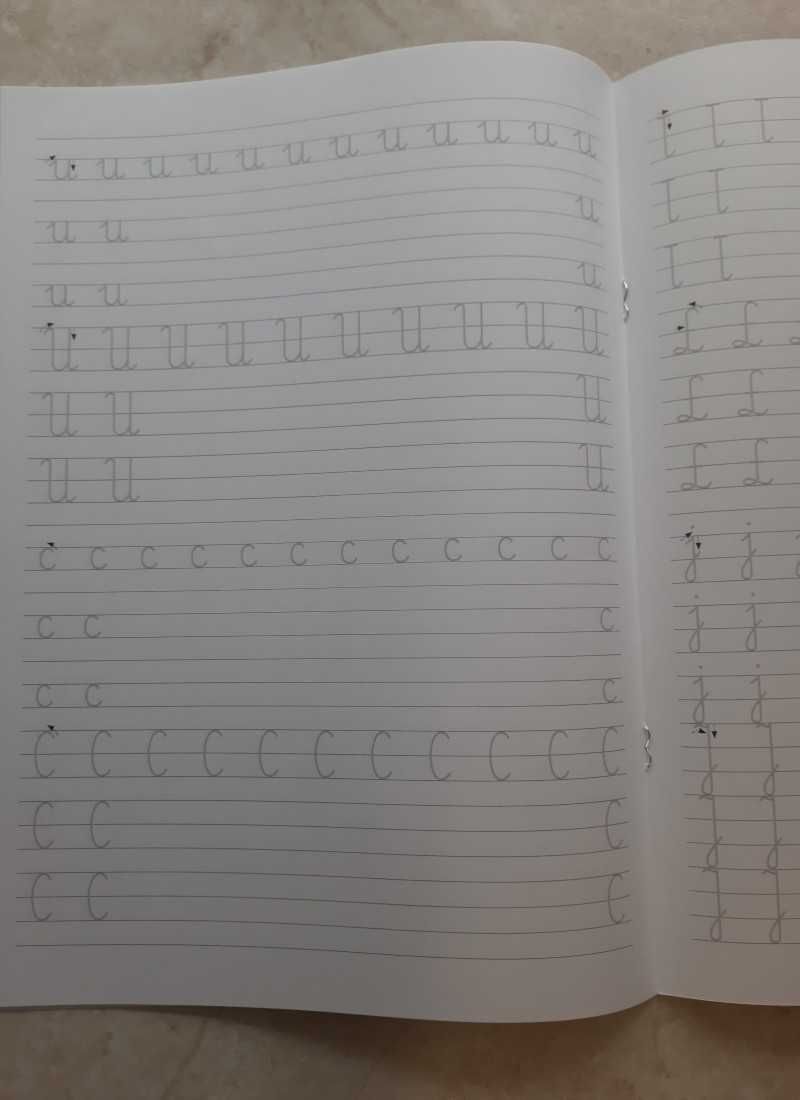 u u u u u u u u u u u u
u u u
u u u
U U U U U U U U U U
U U U
U U U
c c c c c c c c c c c c
c c c
c c c
C C C C C C C C C C C
C C C
C C C
l l l
l l
l l
L L
L L
L L
j j
j j
j j
J J
J J
J J